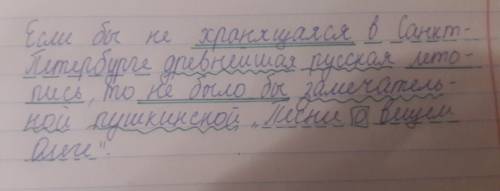 Если бы не хранящаяся в Санкт-
Петербурге древнейшая русская лето-
пись, то не было бы замечатель-
ной пушкинской „Песни о вещем
Олеге".